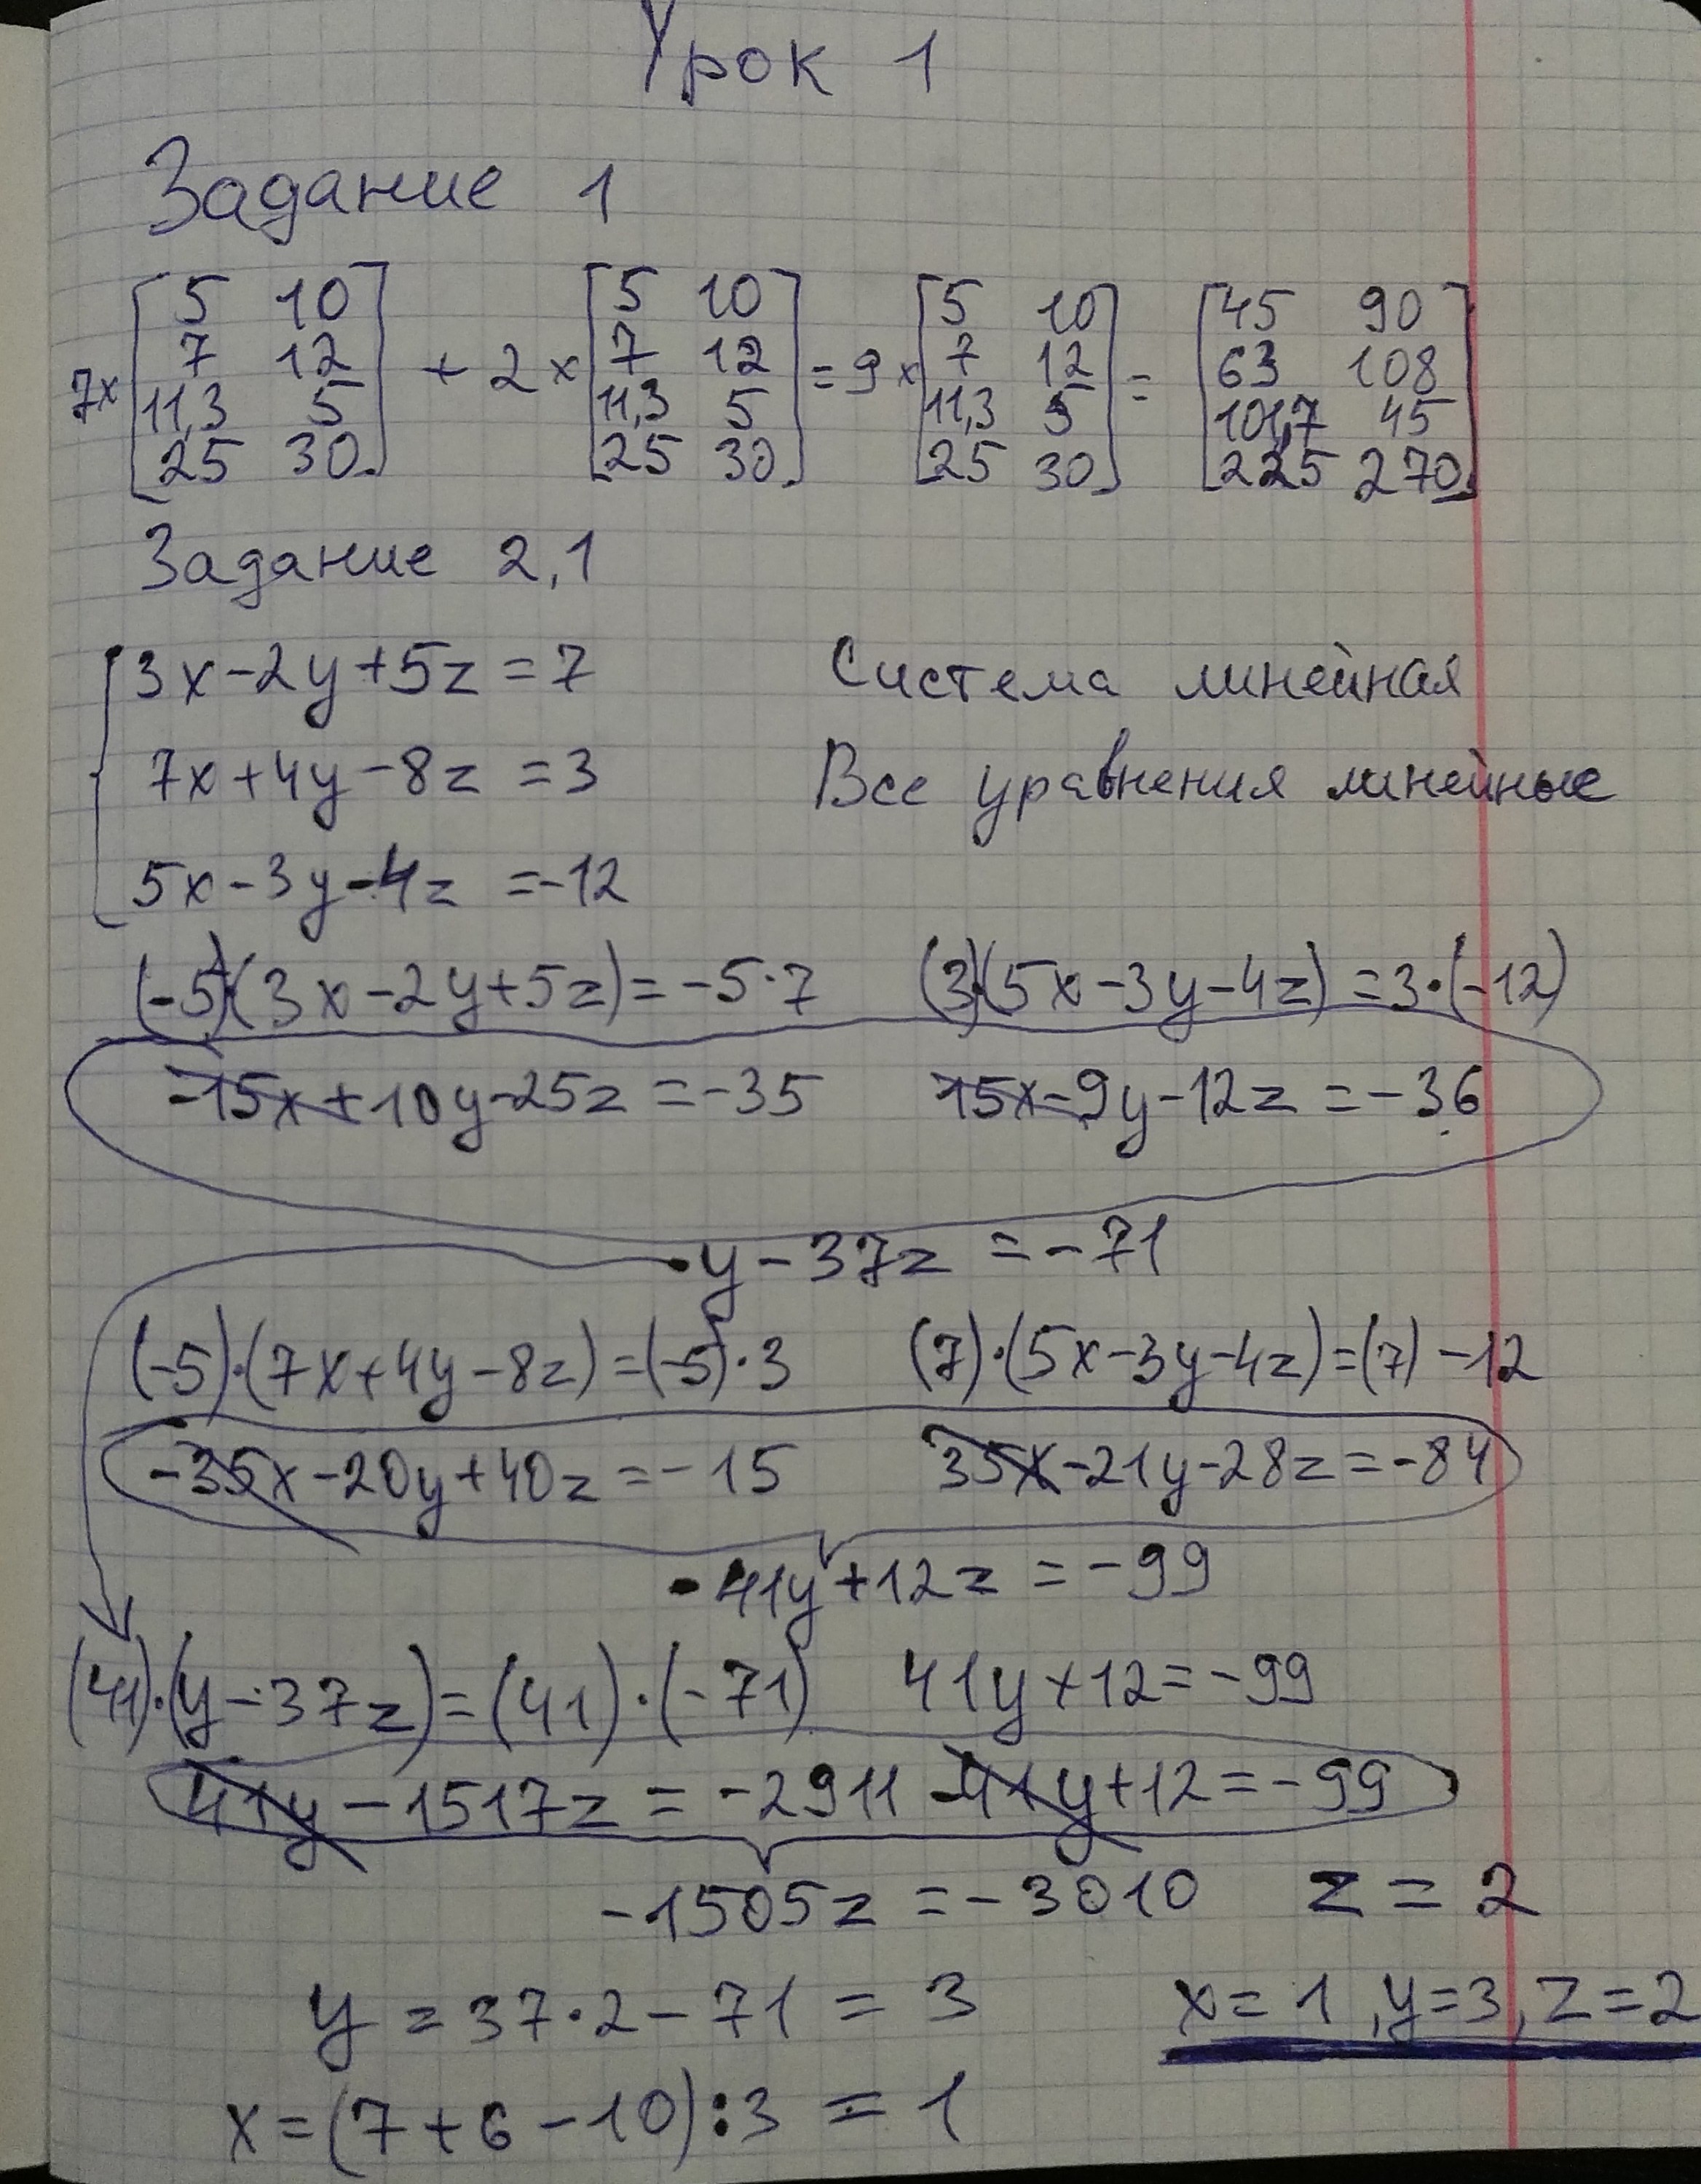 Урок 1
Задание 1
7x [5 10; 7 12; 11,3 5; 25 30] + 2x [5 10; 7 12; 11,3 5; 25 30] = 9x [5 10; 7 12; 11,3 5; 25 30] = [45 90; 63 108; 101,7 45; 225 270]
Задание 2,1
3x-2y+5z=7 Система линейная
7x+4y-8z=3 Все уравнения линейные
5x-3y-4z=-12
(-5)·(3x-2y+5z)=-5·7 (3)·(5x-3y-4z)=3·(-12)
-15x+10y-25z=-35 15x-9y-12z=-36
y-37z=-71
(-5)·(7x+4y-8z)=(-5)·3 (7)·(5x-3y-4z)=(7)-12
-35x-20y+40z=-15 35x-21y-28z=-84
-41y+12z=-99
(41)·(y-37z)=(41)·(-71) 41y+12=-99
41y-1517z=-2911 -41y+12=-99
-1505z=-3010 z=2
y=37·2-71=3 x=1,y=3,z=2
x=(7+6-10):3=1